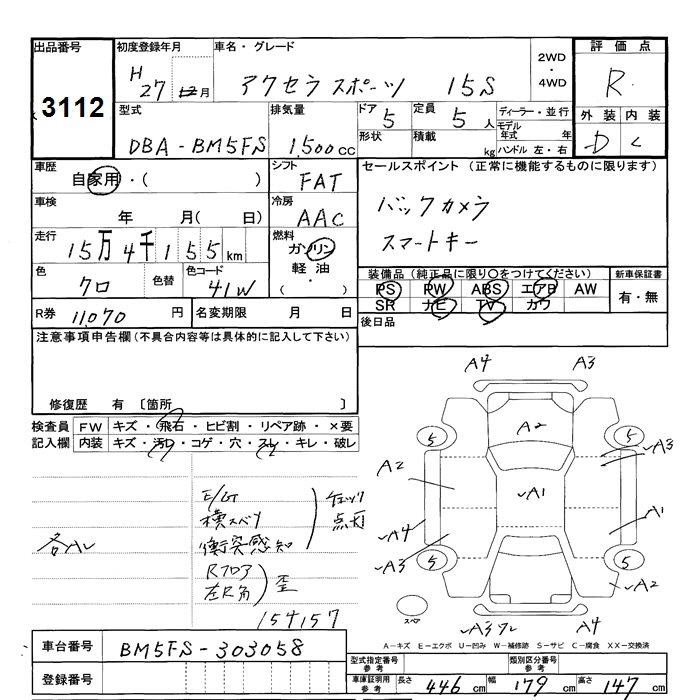 出品番号 3112
初度登録年月 H 27 12月
車名・グレード アクセラスポーツ 15S
2WD・4WD
評価点 R
型式 DBA-BM5FS
排気量 1,500cc
ドア 5
形状
定員 5人
積載 kg
ディーラー・並行
モデル年式 年
ハンドル 左・右
外装 D
内装 C
車歴 自家用・( )
シフト FAT
セールスポイント (正常に機能するものに限ります)
バックカメラ
スマートキー
車検 年 月( 日)
冷房 AAC
走行 15万4千155km
燃料 ガソリン 軽油 ・( )
色 クロ
色替
色コード 41W
装備品(純正品に限り○をつけてください)
PS PW ABS エアB AW
SR ナビ TV カワ
新車保証書 有・無
R券 11,070円
名変期限 月 日
後日品
注意事項申告欄(不具合内容等は具体的に記入して下さい)
修復歴 有 〔箇所 〕
検査員記入欄
FW キズ・飛石・ヒビ割・リペア跡・×要
内装 キズ・汚レ・コゲ・穴・スレ・キレ・破レ
E/G
横スベリ
衝突感知
チェック点灯
Rフロア
左R角
歪
各AL
154157
A4 A3
A2
5 5
A3
A2
A1
A1
A4
A3
5 5
A2
A3 A4
スペア
A-キズ E-エクボ U-凹み W-補修跡 S-サビ C-腐食 XX-交換済
車台番号 BM5FS-303058
登録番号
型式指定番号 参考
類別区分番号 参考
車庫証明用 参考 長さ 446cm 幅 179cm 高さ 147cm